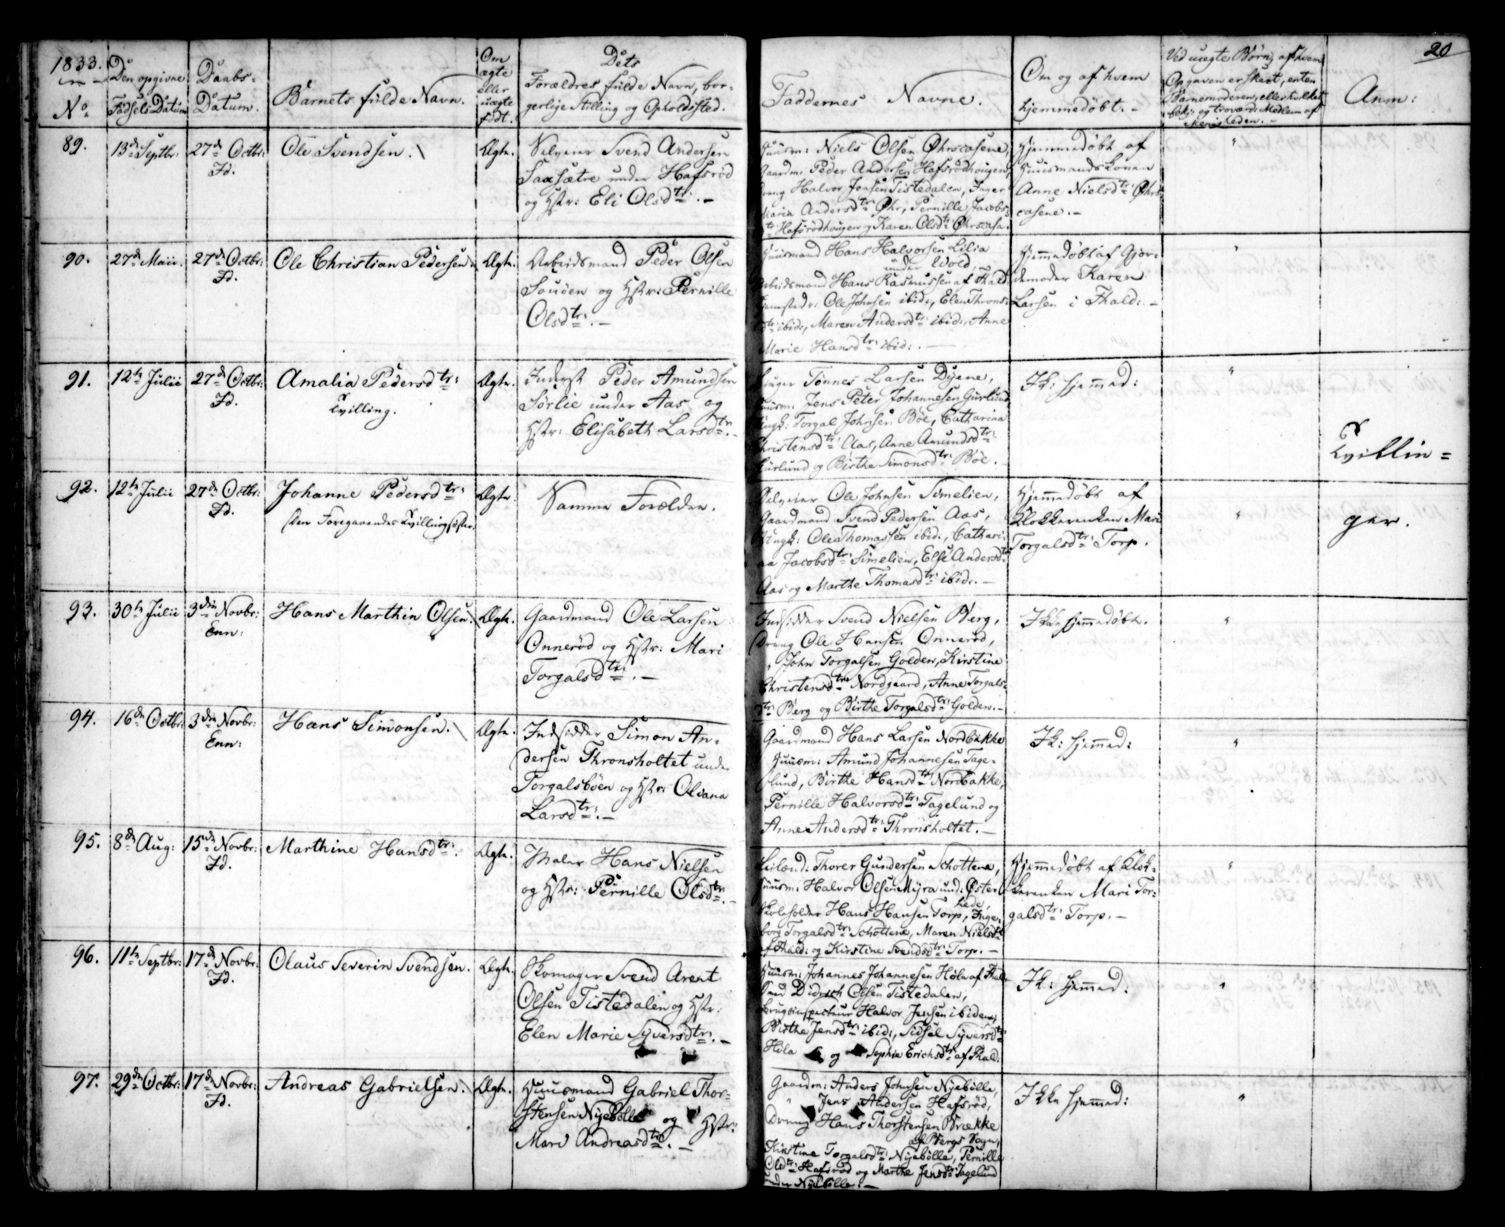 1833.
No
Den opgivne
Fødsels-Datum
Daabs-
Datum.
Barnets fulde Navn.
Om
ægte
eller
uægte
født.
Dets
Forældres fulde Navn, bor-
gerlige Stilling og Opholdsted.
Faddernes Navne.
Om og af hvem
hjemmedøbt. -
Ved uægte Børn, af hvem
Opgaven er skeet, enten
Barnemoderen, eller hvilket
Anm:
20
89.
13de Septbr:
27de Octbr:
Fd.
Ole Svendsen.
Ægte.
Selveier Svend Andersen
Saxsætre under Hafsrød
og Hstr: Eli Olsdtr. -
Huusm: Niels Olsen Øhrscasene,
Gaardm: Peder Andersen Hafsrødhougen,
Dreng Halvor Jensen Tistedalen, Inger
Maria Andersdtr Øhr, Pernille Jacobs-
dtr Hafsrødhougen og Karen Olsdtr Øhrscasa.
Hjemmedøbt af
Huusmandskonen
Anne Nielsdtr Øhrs-
casene. -
90.
27de Maii.
27de Octbr:
Fd.
Ole Christian Pedersen.
Ægte.
Arbeidsmand Peder Olsen
Souøen og Hstr: Pernille
Olsdtr. -
Huusmand Hans Halvorsen Lilia
under Wold,
Arbeidsmand Hans Rasmussen af Fhald:
Ole Johnsen ibid:, Elen Throns-
dtr ibid:, Maren Andersdtr ibid:, Anne
Marie Hansdtr ibid: -
Hjemmedøbt af Gjor-
demoder Karen
Larsen i Fhald: -
"
91.
12te Julii
27de Octbr:
Fd.
Amalia Pedersdtr:
Tvilling.
Ægte.
Inderst Peder Amundsen
Sørlie under Aas og
Hstr: Elisabeth Larsdtr. -
Tønnes Larsen Dyene,
Huusm: Jens Peter Johannesen Gurlund
Ungk: Torgal Johnsen Bøe, Catharina
Christensdtr Aas, Anne Amundsdtr
Gurlund og Birthe Simonsdtr Bøe.
Ik: hjemmed:
"
Tvillin=
92.
12te Julii
27de Octbr:
Fd.
Johanne Pedersdtr:
den Foregaaendes Tvillingsøster.
Ægte.
Samme Forældre.
Selveier Ole Johnsen Simelien,
Gaardmand Svend Pedersen Aas,
Ungk: Ole Thomassen ibid:, Cathari-
na Jacobsdtr Simelien, Else Andersdtr
Aas og Marthe Thomasdtr ibid: -
Hjemmedøbt af
Klokkerenken Mari
Torgalsdtr Torp.
"
ger.
93.
30te Julii
3die Novbr:
Enn:
Hans Marthin Olsen.
Ægte.
Gaardmand Ole Larsen
Onnerød og Hstr: Mari
Torgalsdtr. -
Indsidder Svend Nielsen Berg,
Dreng Ole Hansen Onnerød,
" John Torgalsen Golden, Kirstine
Christensdtr Nordgaard, Anne Torgals-
dtr Berg og Birthe Torgalsdtr Golden. -
Ikke hjemmedøbt.
"
94.
16de Octbr:
3die Novbr:
Enn:
Hans Simonsen.
Ægte.
Indsidder Simon An-
dersen Thronsholtet under
Torgalsbøen og Hstr: Oleana
Larsdtr. -
Gaardmand Hans Larsen Nordbakke
Huusm: Amund Johannesen Tage-
lund, Birthe Hansdtr Nordbakke,
Pernille Halvorsdtr Tagelund og
Anne Andersdtr Thronsholtet. -
Ik: hjemmed:
"
95.
8de Aug:
15de Novbr:
Fd.
Marthine Hansdtr:
Ægte.
Maler Hans Nielsen
og Hstr: Pernille Olsdtr. -
Leilend: Thorer Gundersen Schottene,
Huusm: Halvor Olsen Myra und: Øster-
hede,
Skoleholder Hans Hansen Torp, Inge-
borg Torgalsdtr Schottene, Maren Nielsdtr
af Fhald: og Kirstine Svendsdtr Torp. -
Hjemmedøbt af Klok-
kerenken Mari Tor-
galsdtr Torp. -
"
96.
11te Septbr:
17de Novbr:
Fd.
Olaus Severin Svendsen.
Ægte.
Skomager Svend Arent
Olsen Tistedalen og Hstr:
Elen Marie Syversdtr. -
Huusm: Johannes Johannesen Hola af Fhald
Sml Didrich Olsen Tistedalen,
Brugsinspecteur Halvor Jensen ibidem,
Birthe Jensdtr ibid:, Sidsel Syversdtr
Hola og Sophie Erichsdtr af Fhald.
Ik: hjemmed:
"
97.
29de Octbr:
17de Novbr:
Fd.
Andreas Gabrielsen.
Ægte.
Huusmand Gabriel Thor-
stensen Nyebølle og Hstr:
Mari Andreasdtr. -
Gaardm: Anders Johnsen Nyebølle,
" Jens Andersen Hafsrød,
Dreng Hans Thorstensen Brække
af Bergs Sogn,
Kirstine Torgalsdtr Nyebølle, Pernille
Olsdtr Hafsrød og Marthe Jensdtr Tagelund
under Nyebølle. -
Ikke hjemmed:
"